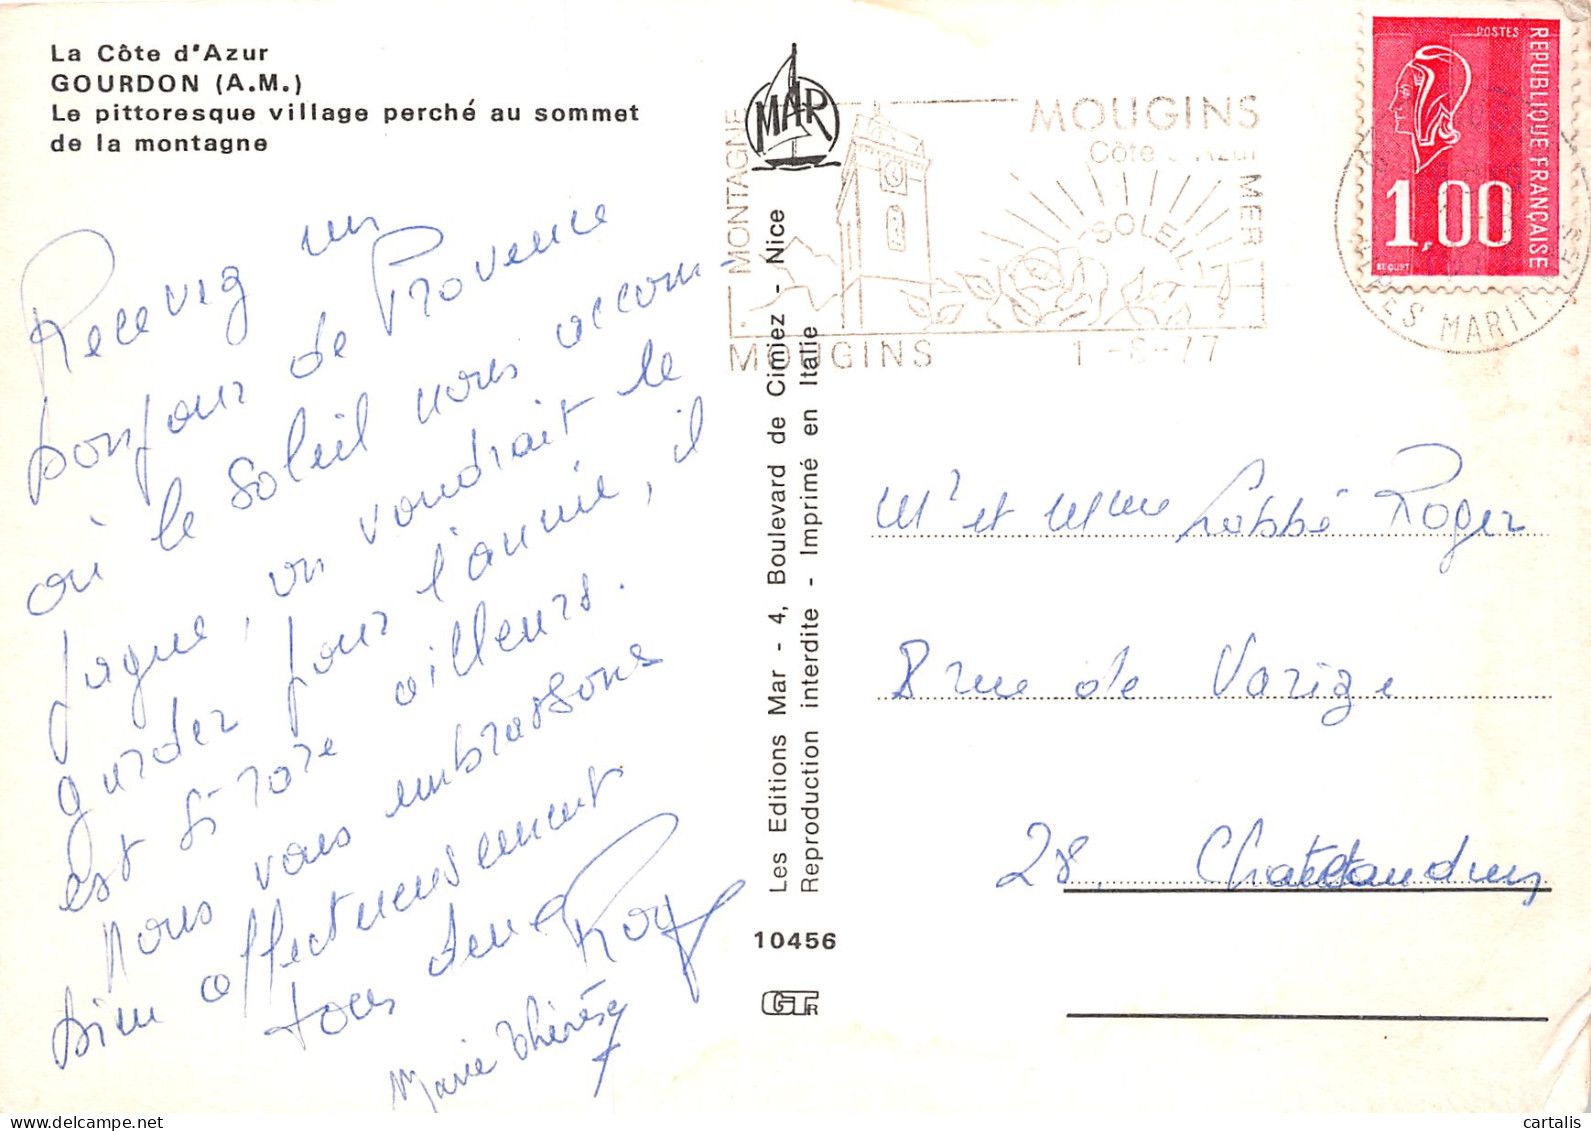 La Côte d'Azur
GOURDON (A.M.)
Le pittoresque village perché au sommet
de la montagne
Recevez un
bonjour de Provence
où le soleil nous accom-
pagne, on voudrait le
garder pour l'année, il
est si rare ailleurs.
Nous vous embrassons
bien affectueusement
tous deux
Marie Thérèse
MAR
Les Editions Mar - 4, Boulevard de Cimiez - Nice
Reproduction interdite - Imprimé en Italie
10456
GTR
MONTAGNE
MOUGINS
Côte d'Azur
SOLEIL
MER
MOUGINS
1-8-77
POSTES
REPUBLIQUE FRANÇAISE
1,00
BEQUET
ALPES MARITIMES
Mr et Mme Labbé Roger
8 rue de Varize
28. Chateaudun
cartalis